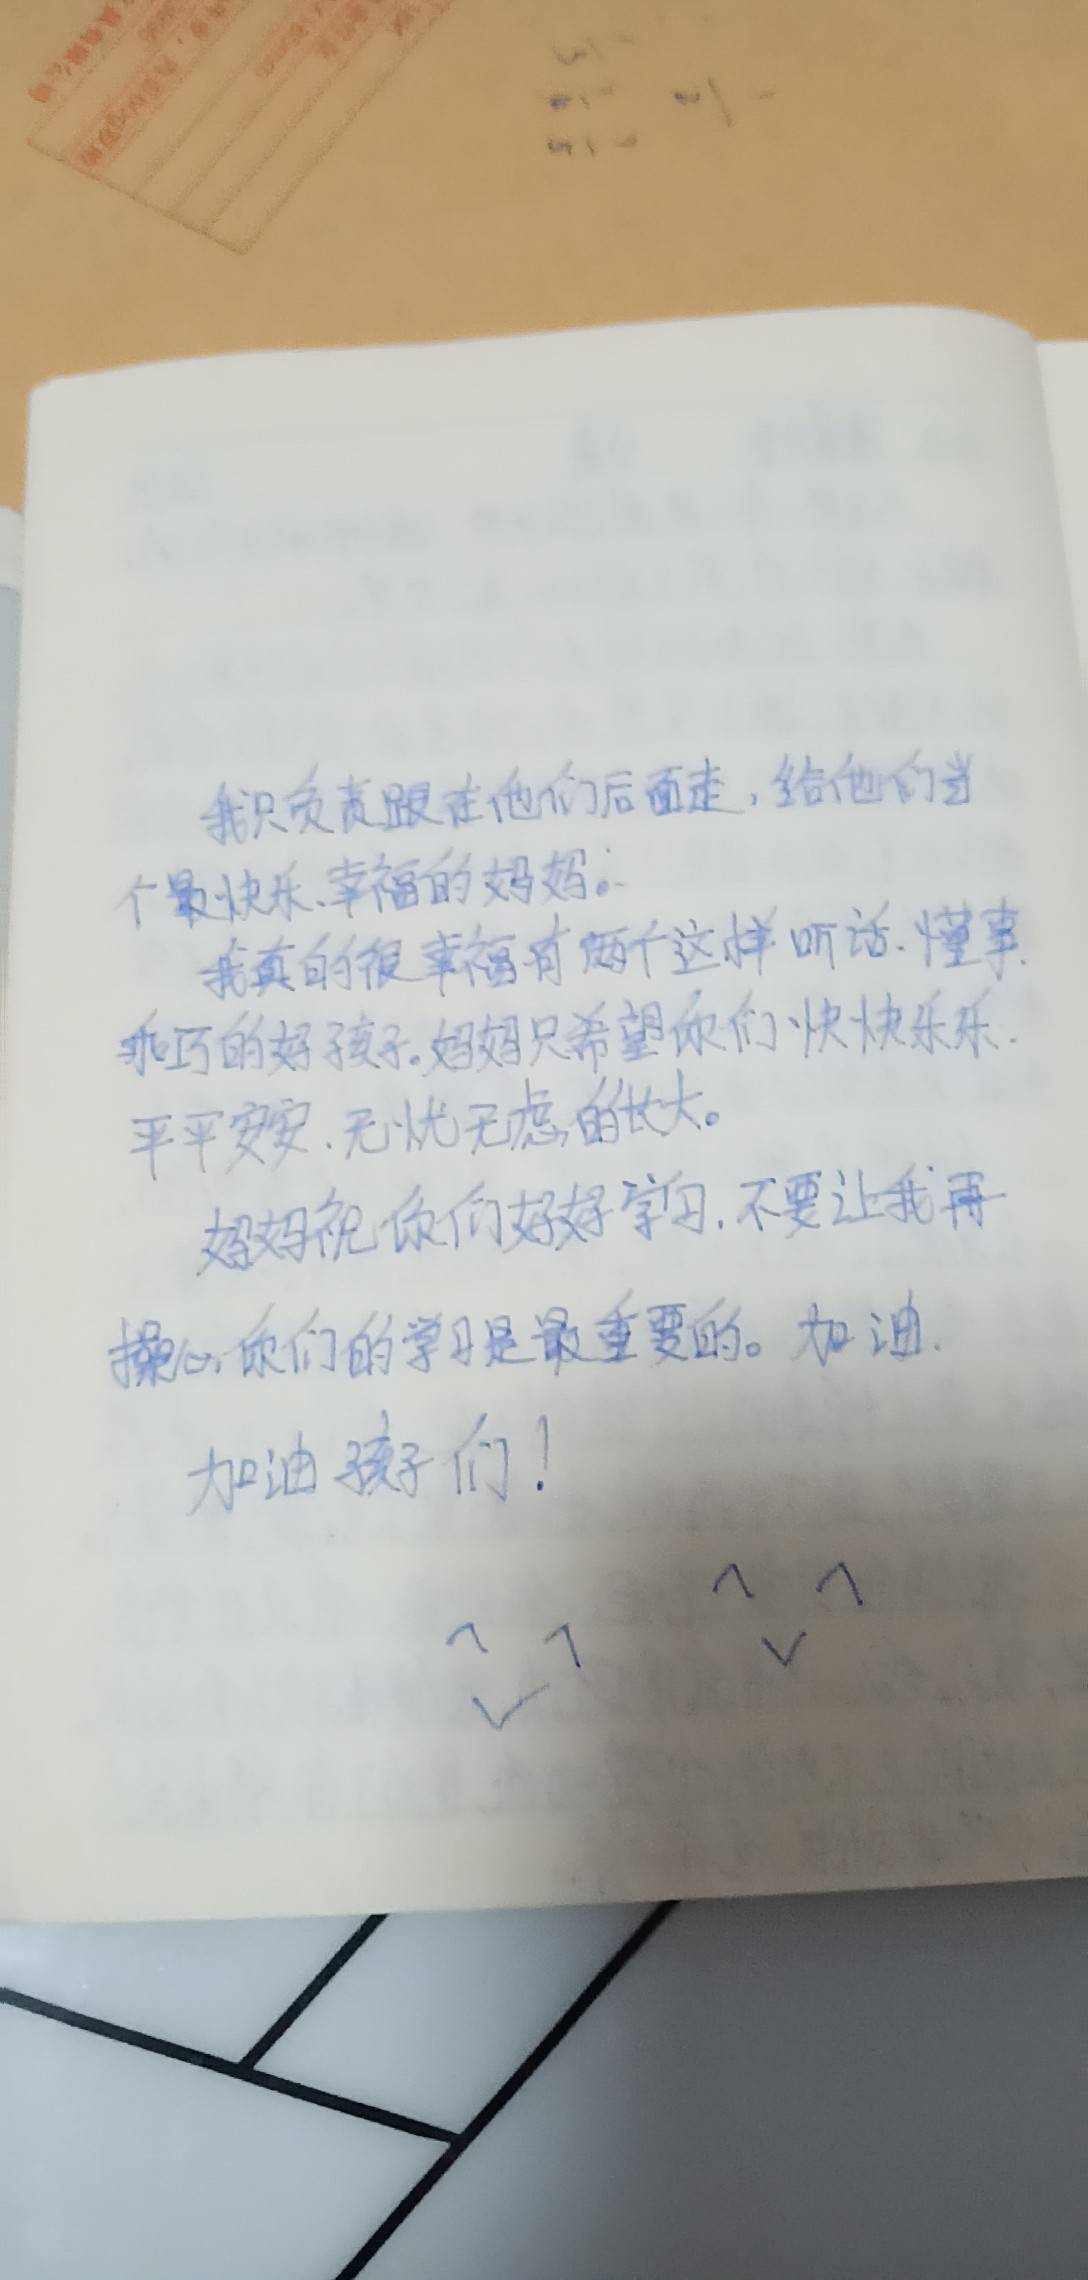 我只负责跟在他们后面走，给他们当
个最快乐、幸福的妈妈。
我真的很幸福有两个这样听话、懂事、
乖巧的好孩子。妈妈只希望你们快快乐乐、
平平安安、无忧无虑的长大。
妈妈祝你们好好学习，不要让我再
操心，你们的学习是最重要的。加油、
加油孩子们！